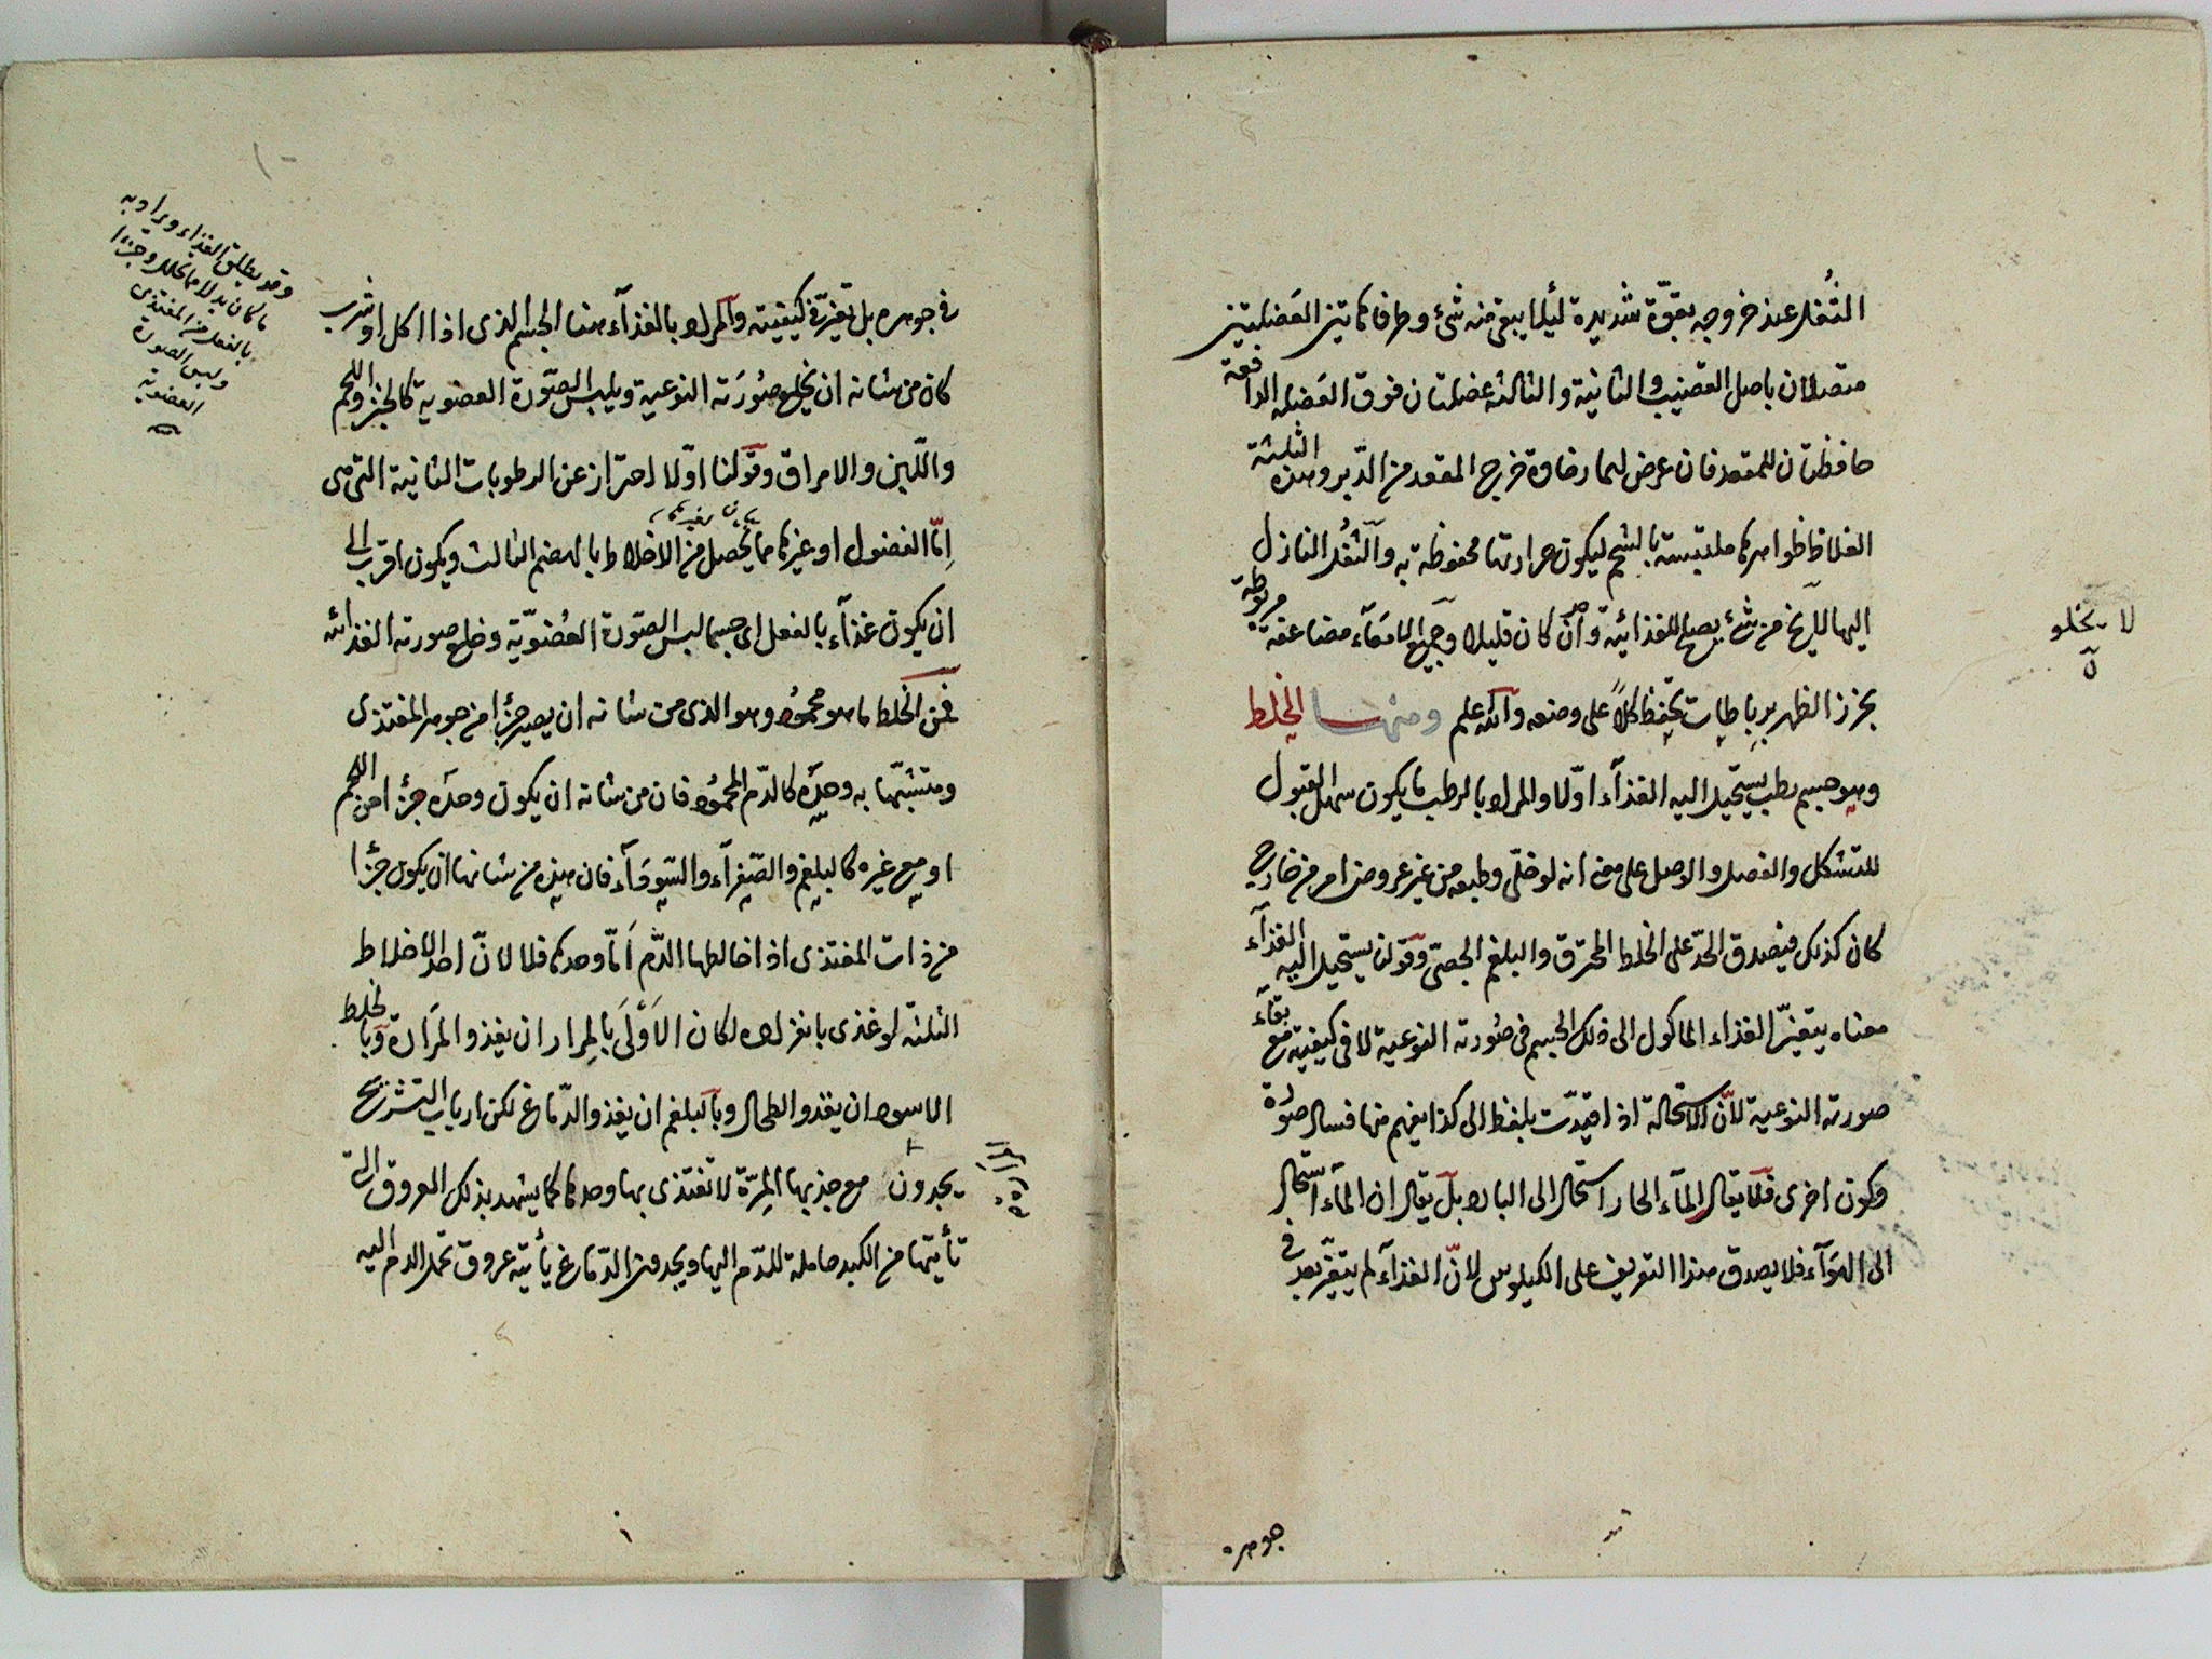 الثُفل عند خروجه بقوّة شديدة لئلا يبقى منه شئ وطرفا هاتين العضلتين
متصلان باصل القضيب والثانية والثالثة عضلتان فوق العضلة الدافعة
حافظتان للمقعد فان عرض لهما رخاوة خرج المقعد من الدّبر وهذه الثلثة
الغلاظ ظواهرها ملتبسة بالشحم ليكون حرارتها محفوظة به والثُفل النازل
اليها لا يخ من شئ يصلح للغذائية وان كان قليلا وجميع الامعاء مضاعفة مربوطة
بخرز الظهر برباطات تحفظ كلاً على وضعه والله علم ومنها الخلط
وهو جسم رطب يستحيل اليه الغذآء اوّلا والمراد بالرطب ما يكون سهل القبول
للتشكل والفصل والوصل على معنى انه لو خلّى وطبعه من غير عروض امر من خارج
كان كذلك فيصدق الحدّ على الخلط المحترق والبلغم الجصّى وقولنا يستحيل اليه الغذآء
معناه يتغيّر الغذاء الماكول الى ذلك الجسم فى صُورته النوعية لا فى كيفيته مع بقآء
صورته النوعية لانّ الاستحالة اذا قيّدت بلفظ الى كذا يفهم منها فساد صورة
وكون اخرى فلا يقال المآء الحار استحال الى البارد بل يقال ان المآء استحال
الى الهوآء فلا يصدق هذا التعريف على الكيلوس لانّ الغذآء لم يتغيّر بعد فى
جوهره
لا يخلو
ن
فى جوهره بل تغيّر فى كيفيته والمراد بالغذآء هنا الجسم الذى اذا اكل او شرب
كان من شانه ان يخلع صُورَته النوعية ويلبس الصّورة العضوية كالخبز واللحم
واللّبن والامراق وقولنا اوّلا احتراز عن الرطوبات الثانية التى هى
اِمّا الفضول او غيرها مما يحصل من الاخلاط بالهضم الثالث ويكون اقرب الى
ان يكون غذآء بالفعل اى جسما لبس الصّورة العُضويّة وخلع صورته الغذائه
فمن الخلط ما هو محمُود وهو الذى من شانه ان يصير جزأ من جوهر المغتذى
ومتشبّها به وحده كالدّم المحمُود فان من شانه ان يكون وحده جزأ من اللحم
او مع غيره كالبلغم والصّفرآء والسّودآء فان هذه من شانها ان يكون جزأ
من ذات المغتذى اذا خالطها الدّم اَمّا وحدها فلا لانّ احد الاخلاط
الثلثة لو غذى بانفراده لكان الاَوْلَى بالمِرار ان يغذو المَرَارة وبالخلط
الاسود ان يغذو الطحال وبالبلغم ان يغذو الدّماغ لكن ارباب التشريح
يجدون مع جذبها المِرّة لا تغتذى بها وحدها كما يشهد بذلك العروق التى
تأيتها من الكبد حاملة للدّم اليها ويجدون الدّماغ يأتيه عروق تحمل الدم اليه
وقد يطلق الغذاء ويراد به
ما كان بدلا مما تحلل وجزءا
بالفعل من المغتذى
ولبس الصورة
العضوية
المرارة